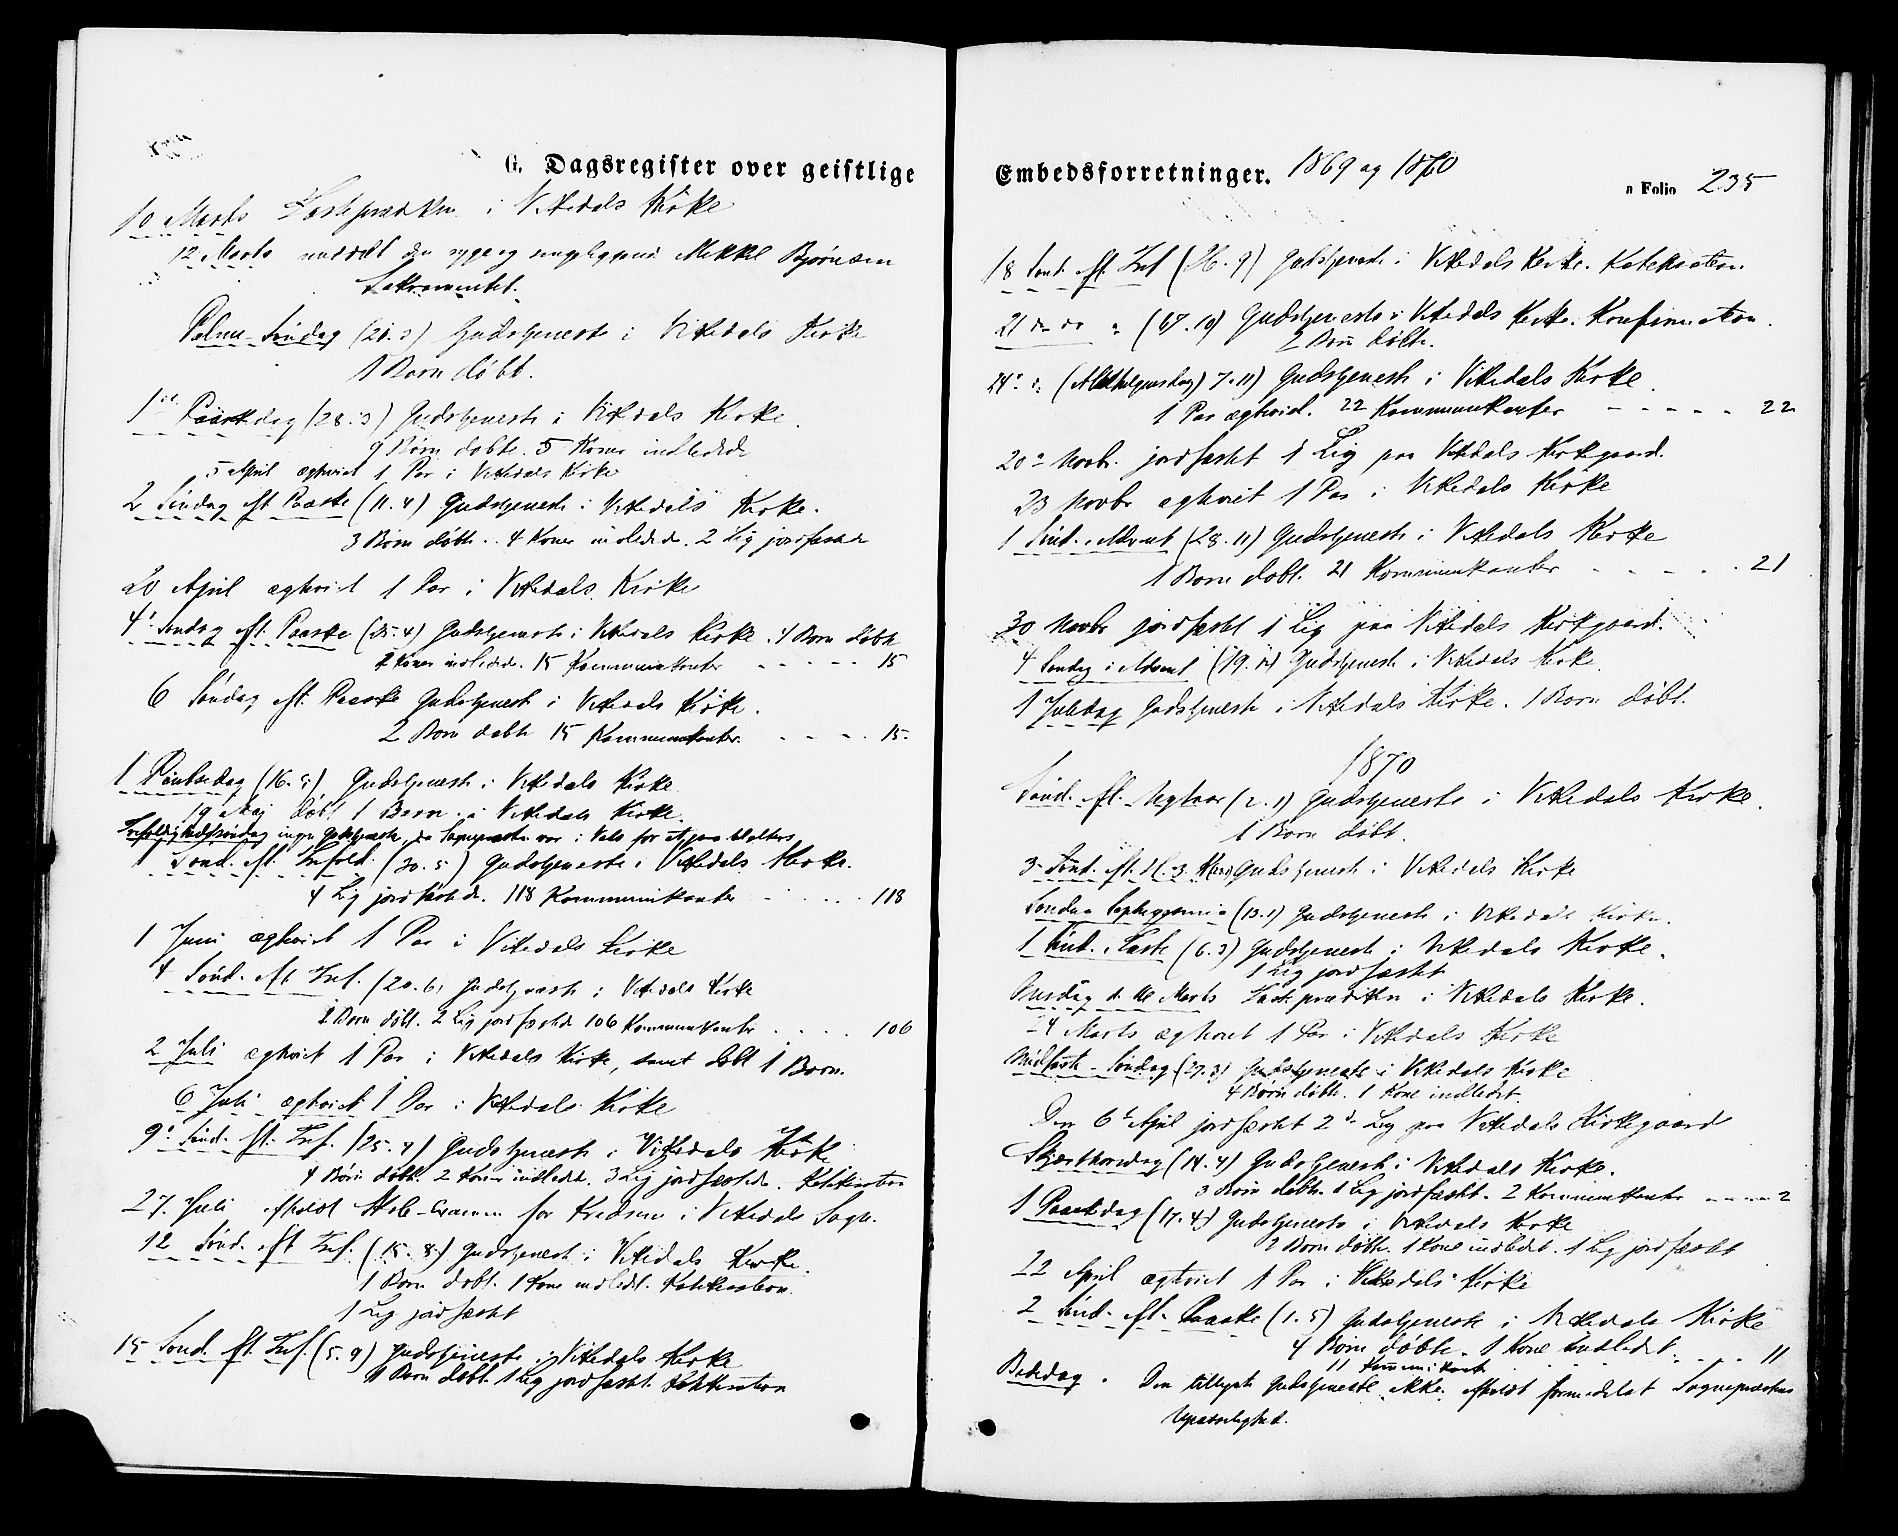 G. Dagsregister over geistlige
10 Marts Fasteprædiken i Vikedals Kirke
12 Marts meddelt den syge og sengeliggende Mikkel Bjørnsen
Sakramentet.
Palme-Søndag (21.3) Gudstjeneste i Vikedals Kirke
1 Barn døbt.
1st Paaskedag (28.3) Gudstjeneste i Vikedals Kirke.
9 Børn døbte. 5 Koner indledede
5 April ægteviet 1 Par i Vikedals Kirke
2 Søndag eft Paaske (11.4) Gudstjeneste i Vikedals Kirke.
3 Børn døbte. 4 Koner indledede. 2 Lig jordfæstede
20 April ægteviet 1 Par i Vikedals Kirke
4de Søndag eft. Paaske (25.4) Gudstjeneste i Vikedals Kirke. 4 Børn døbte
2 Koner indledede. 15 Kommunikanter - - - - - 15
6 Søndag eft. Paaske Gudstjeneste i Vikedals Kirke.
2 Børn døbte 15 Kommunikanter. - - - - 15.
1 Pintsedag (16.5) Gudstjeneste i Vikedals Kirke.
19 Maj døbt 1 Barn i Vikedals Kirke.
Trefoldighedssøndag ingen Gudstjeneste, da Sognepræsten var i
1 Sønd. eft. Trefold. (30.5) Gudstjeneste i Vikedals Kirke.
4 Lig jordfæstede. 118 Kommunikanter - - - - 118
1 Juni ægteviet 1 Par i Vikedals Kirke
4 Sønd. eft Tref. (20.6) Gudstjeneste i Vikedals Kirke
2 Børn døbt. 2 Lig jordfæstede 106 Kommunikanter . . . . 106
2 Juli ægteviet 1 Par i Vikedals Kirke, samt døbt 1 Barn.
6 Juli ægteviet 1 Par i Vikedals Kirke
9de Sønd. eft. Tref. (25.7) Gudstjeneste i Vikedals Kirke
4 Børn døbt. 2 Koner indledet. 3 Lig jordfæstede. Katekisation
27. Juli afholdt Skole-Examen for Kredsene i Vikedals Sogn.
12 Sønd. eft Tref. (15.8) Gudstjeneste i Vikedals Kirke.
1 Barn døbt. 1 Kone indledt. Katekisation.
1 Lig jordfæstet
15 Sønd. eft. Tref. (5.9) Gudstjeneste i Vikedals Kirke
1 Barn døbt. 1 Lig jordfæstet. Katekisation
Embedsforretninger. 1869 og 1870
n Folio 235
18 Sønd. eft. Tref (26.9) Gudstjeneste i Vikedals Kirke. Katekisation.
21 do do (17.10) Gudstjeneste i Vikedals Kirke. Konfirmation.
2 Børn døbte.
24de (Allehelgensdag) 7.11) Gudstjeneste i Vikedals Kirke.
1 Par ægteviet. 22 Kommunikanter - - - - - 22
20de Novbr. jordfæstet 1 Lig paa Vikedals Kirkegaard.
23 Novbr ægteviet 1 Par i Vikedals Kirke
1 Sønd. i Advent (28.11) Gudstjeneste i Vikedals Kirke
1 Barn døbt. 21 Kommunikanter - - - - - 21
30 Novbr jordfæstet 1 Lig paa Vikedals Kirkegaard.
4 Søndag i Advent (19.12) Gudstjeneste i Vikedals Kirke.
1 Juledag Gudstjeneste i Vikedals Kirke. 1 Barn døbt.
1870
Sønd. eft. Nytaar (2.1) Gudstjeneste i Vikedals Kirke.
1 Barn døbt.
3 Sønd. eft. Gudstjeneste i Vikedals Kirke
Søndag Gudstjeneste i Vikedals Kirke.
1 Sønd. i Faste (6.3) Gudstjeneste i Vikedals Kirke.
1 Lig jordfæstet
Onsdag d. 16 Marts Fasteprædiken i Vikedals Kirke.
24 Marts ægteviet 1 Par i Vikedals Kirke
Midfaste-Søndag (27.3) Gudstjeneste i Vikedals Kirke
4 Børn døbte. 1 Kone indledet.
Den 6te April jordfæstet 2de Lig paa Vikedals Kirkegaard
Skjærthorsdag (14.4) Gudstjeneste i Vikedals Kirke.
3 Børn døbte. 1 Lig jordfæstet. 2 Kommunikanter - - - - 2
1 Paaskedag (17.4) Gudstjeneste i Vikedals Kirke
2 Børn døbte. 1 Kone indledet. 1 Lig jordfæstet
22 April ægteviet 1 Par i Vikedals Kirke
2 Sønd. eft. Paaske (1.5) Gudstjeneste i Vikedals Kirke
4 Børn døbte. 1 Kone indledet.
11 Kommunikant. . . . 11
Bededag. Den tillyste Gudstjeneste ikke afholdt formedelst Sognepræstens
Upasselighed.